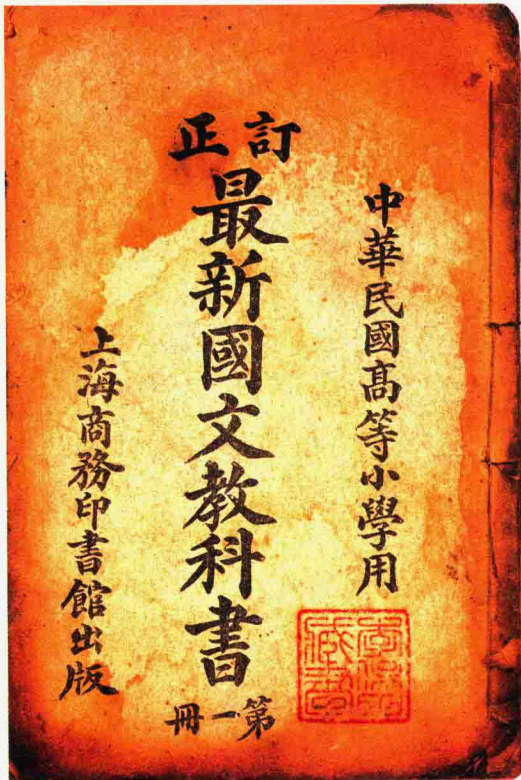 中華民國高等小學用
訂正
最新國文教科書
第一冊
上海商務印書館出版